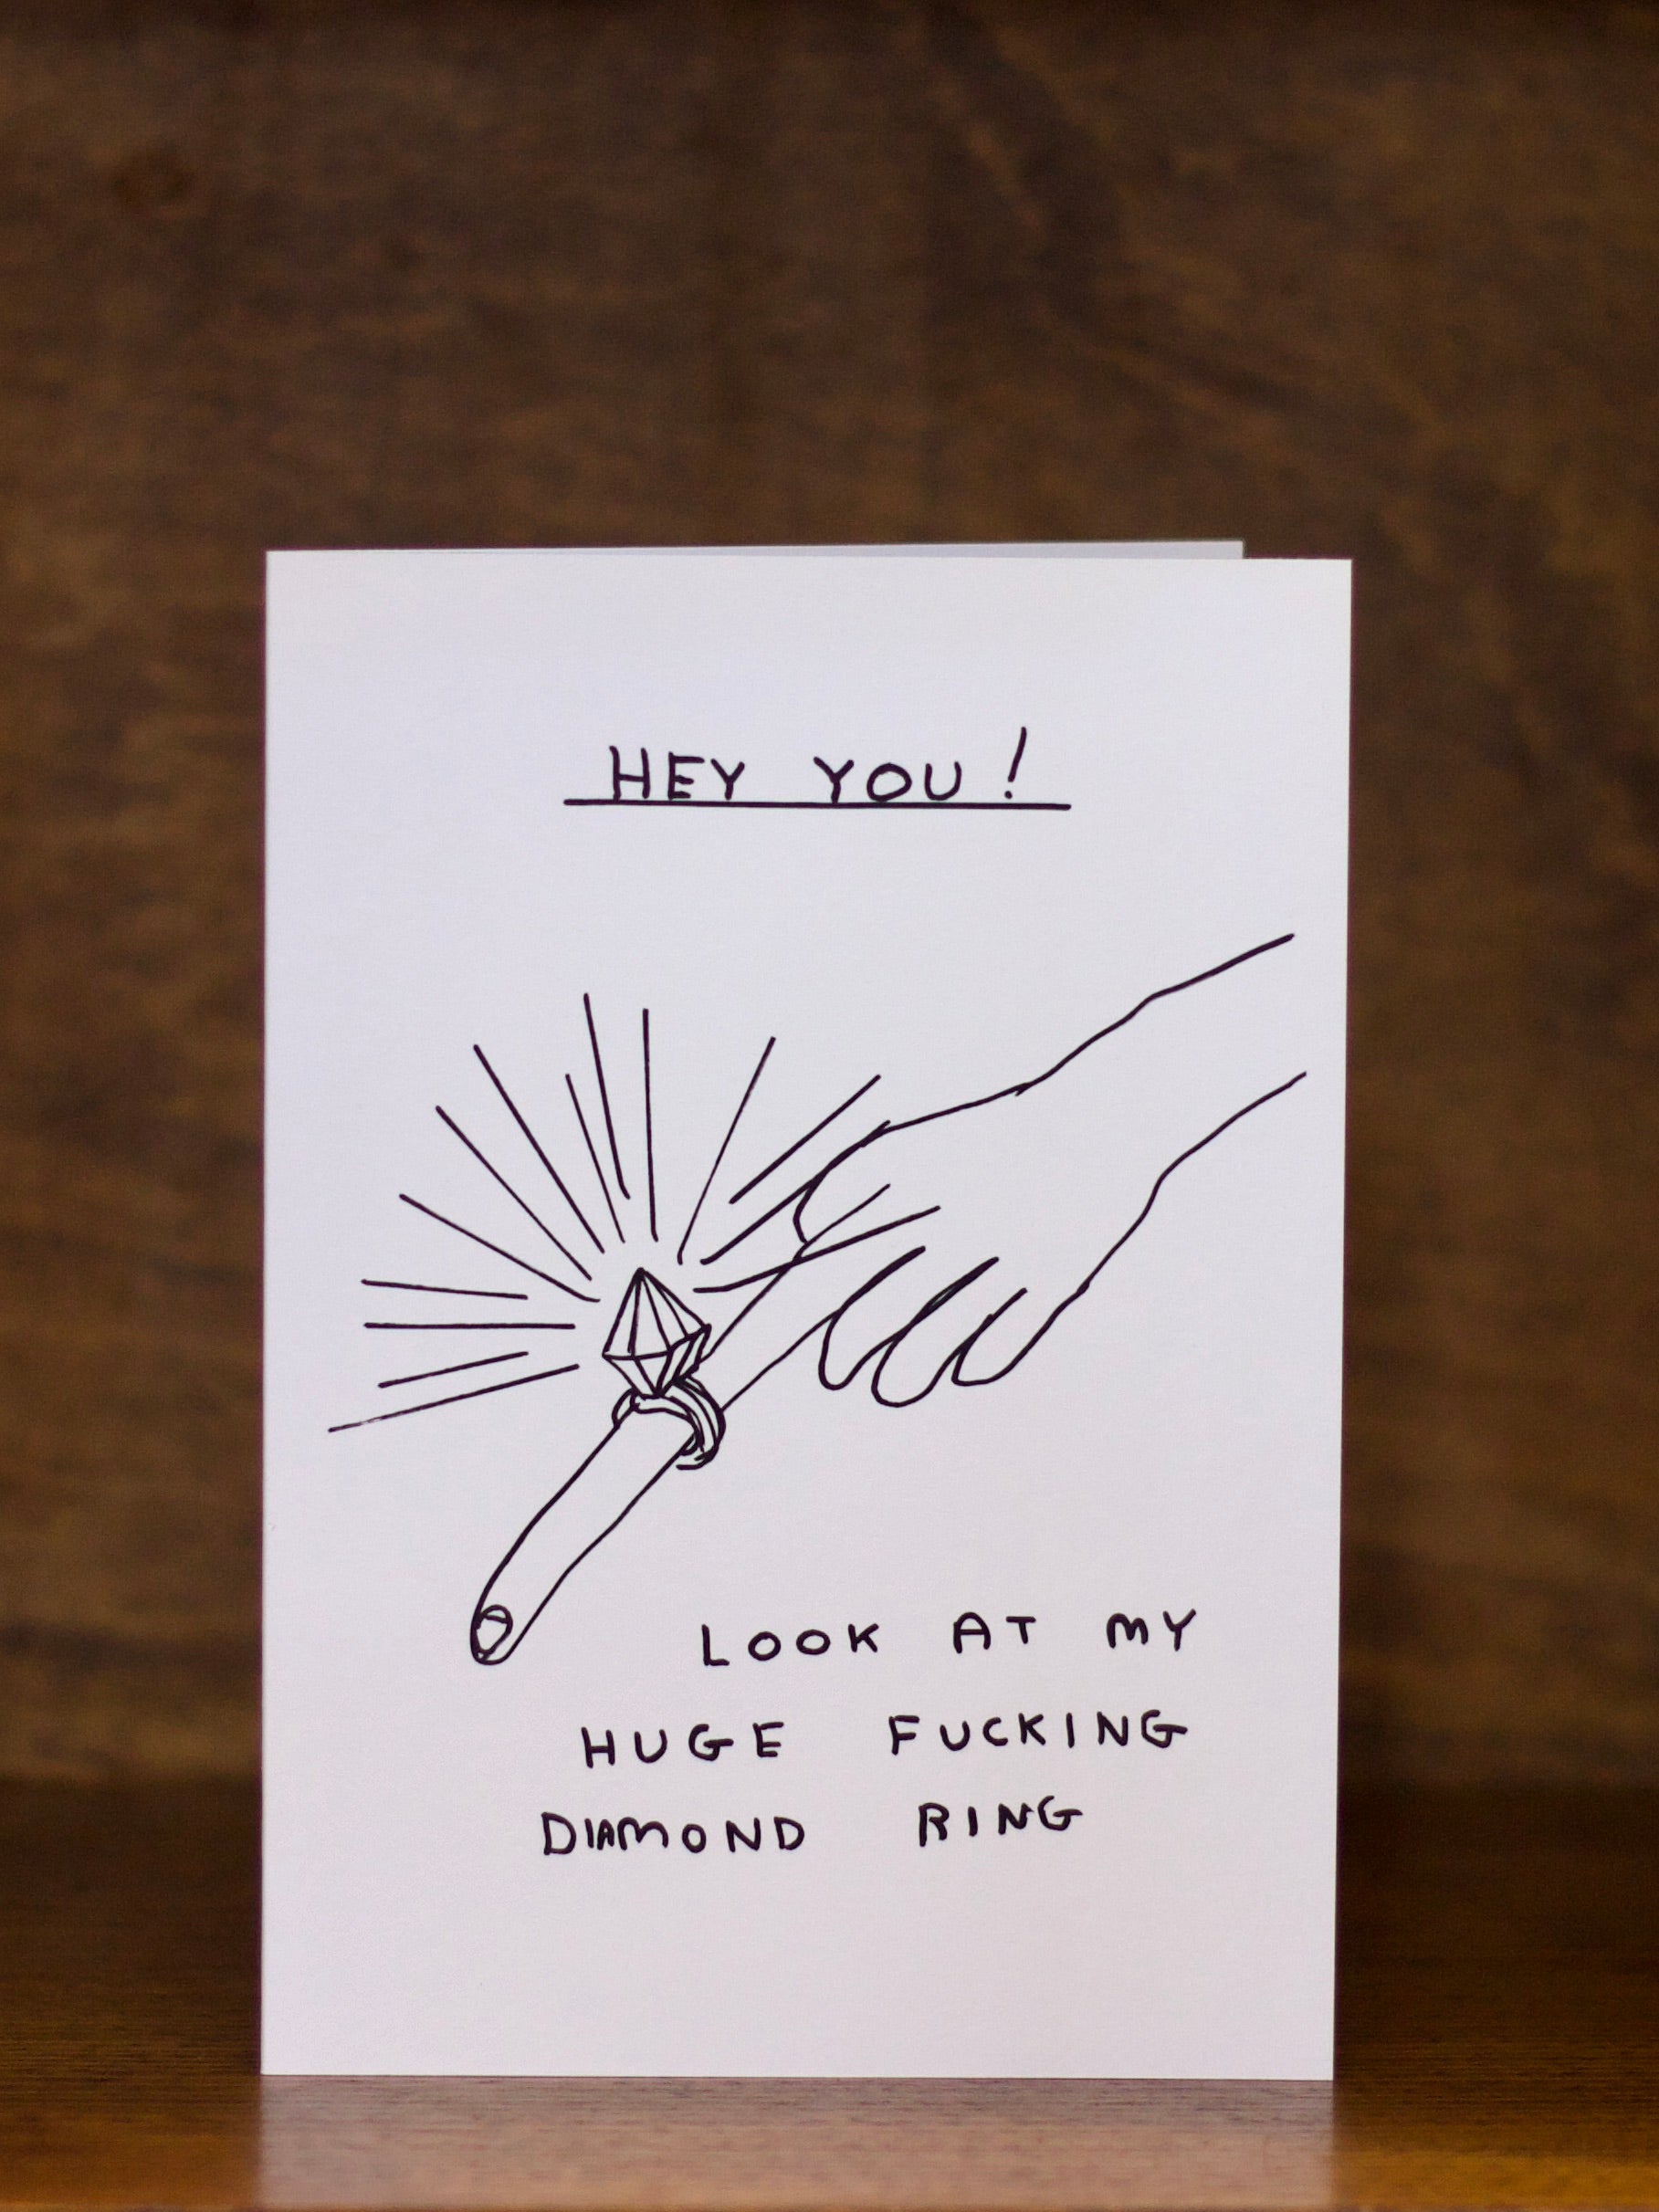 HEY YOU!
LOOK AT MY
HUGE FUCKING
DIAMOND RING